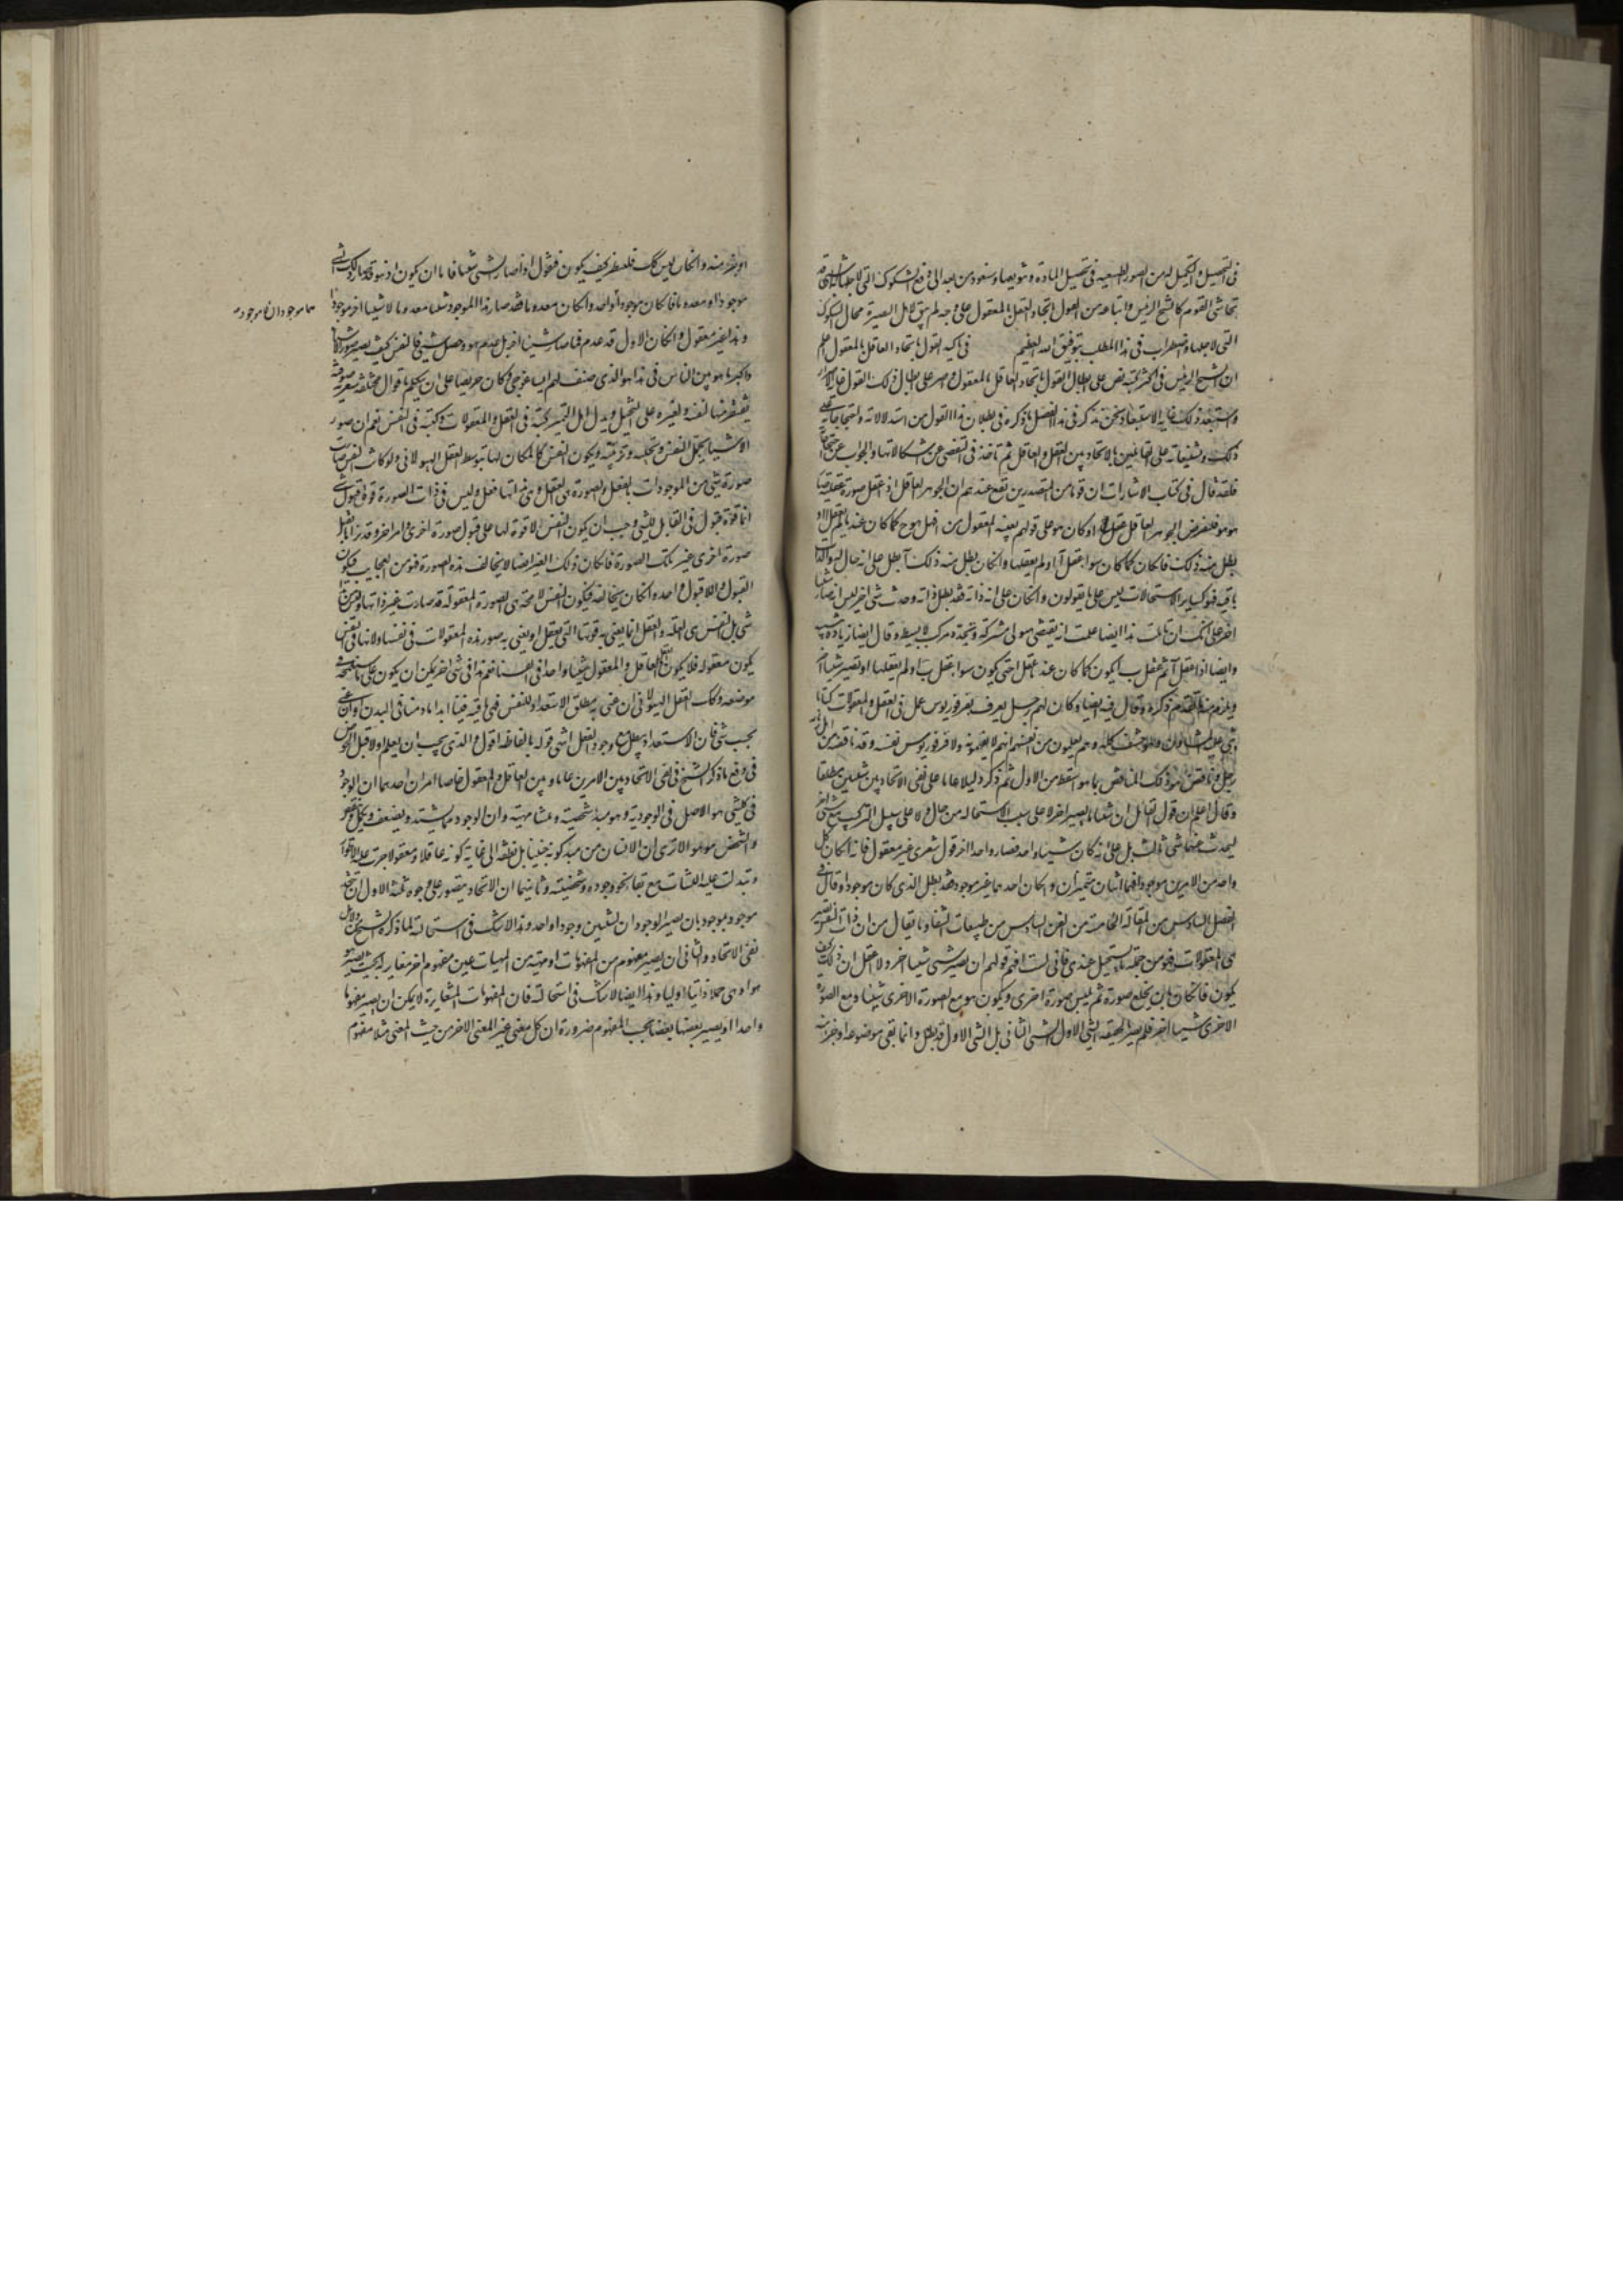 فى التحصيل و التحميل له من الصور الطبيعيه فى تحصيل المادة و تنويعها و سنعود من بعد الى دفع الشكوك التى لاجلها
تحاشى القوم كالشيخ الرئيس و اتباعه من القول باتحاد العقل بالمعقول على وجه لم يبق لاهل البصيرة مجال الشكوك
التى لاجلها وقع الاضطراب فى هذا المطلب بتوفيق الله العظيم فى تاكيد القول باتحاد العاقل بالمعقول اعلم
ان الشيخ الرئيس فى اكثر كتبه نص على ابطال القول باتحاد العاقل بالمعقول و اصر على ابطال ذلك القول غاية الاصرار
و استبعد ذلك غاية الاستبعاد و نحن نذكر فى هذا الفصل ما ذكره فى بطلان هذا القول من استدلالاته و احتجاجاته على
ذلك و تشنيعاته على القائلين بالاتحاد بين العقل و العاقل ثم ناخذ فى التفصى عن اشكالاتها و الجواب عن احتجاجاتها
فلقد قال فى كتاب الاشارات ان قوما من المتصدرين يقع عندهم ان الجوهر العاقل اذا عقل صورة عقلية صار
هو هو فلنفرض الجوهر العاقل عقل ا و كان هو على قولهم بعينه المعقول من ا فهل هو ح كما كان عند ما لم يعقل ا او
بطل منه ذلك فان كان كما كان سواء عقل ا او لم يعقلها و ان كان بطل منه ذلك ا بطل على انه حال له و الذات
باقية فهو كساير الاستحالات ليس على ما يقولون و ان كان على انه ذاته فقد بطل ذاته و حدث شى اخر ليس انه صار شيئا
اخر على انك ان تاملت هذا ايضا علمت انه يقتضى هيولى مشتركة و تجدد مركب لا بسيط و قال ايضا زيادة تنبيه
و ايضا اذا عقل ا ثم عقل ب ايكون كما كان عند ما عقل ا حتى يكون سواء عقل ب او لم يعقلها او يصير شيئا اخر
و يلزم منه ما تقدم ذكره و قال فيه ايضا و كان لهم رجل يعرف بفرفوريوس عمل فى العقل و المعقولات كتابا
يثنى عليه المشاؤن و هو حشف كله و هم يعلمون من انفسهم انهم لا يفهمونه و لا فرفوريوس نفسه و قد ناقضه من اهل زمانه
رجل و ناقض هو ذلك المناقض بما هو اسقط من الاول ثم ذكر دليلا عاما على نفى الاتحاد بين شيئين مطلقا
و قال اعلم ان قول القائل ان شيئا ما يصير شيئا اخر لا على سبيل الاستحالة من حال الى حال و لا على سبيل التركيب مع شى اخر
ليحدث عنهما شى ثالث بل على انه كان شيئا واحدا فصار واحدا اخر قول شعرى غير معقول فانه ان كان كل
واحد من الامرين موجودا فهما اثنان متميزان و ان كان احدهما غير موجود فقد بطل الذى كان موجودا و قال فى
الفصل السادس من المقالة الخامسة من الفن السادس من طبيعيات الشفا و ما يقال من ان ذات النفس تصير
هى المعقولات فهو من جملة ما يستحيل عندى فانى لست افهم قولهم ان يصير شى شيئا اخر و لا اعقل ان ذلك كيف
يكون فان كان بان يخلع صورة ثم يلبس صورة اخرى و يكون هو مع الصورة الاولى شيئا و مع الصورة
الاخرى شيئا اخر فلم يصر بالحقيقه الشى الاول الشى الثانى بل الشى الاول قد بطل و انما بقى موضوعه او جزء منه
او جزء منه و ان كان ليس كك فلينظر كيف يكون فنقول اذا صار الشى شيئا فاما ان يكون اذ هو قد صار ذلك الشى
موجودا او معدوما فان كان موجودا و ان كان معدوما فقد صار هذا الموجود شيئا معدوما لا شيئا اخر موجودا
هما موجودان لا موجود
و هذا غير معقول و ان كان الاول قد عدم فما صار شيئا اخر بل عدم هو و حصل شى اخر فالنفس كيف تصير صور الاشيا
و اكثر ما هوس الناس فى هذا هو الذى صنف لهم ايساغوجى و كان حريصا على ان يتكلم باقوال مخيلة شعرية صوفية
يقتصر منها لنفسه و لغيره على التخيل و يدل اهل التميز كتبه فى العقل و المعقولات و كتبه فى النفس نعم ان صور
الاشيا تحل النفس و تحليه و تزينه و يكون النفس كالمكان لها بتوسط العقل الهيولانى و لو كانت النفس صارت
صورة شى من الموجودات بالفعل و الصورة هى الفعل و هى بذاتها فعل و ليس فى ذات الصورة قوة قبول شى
انما قوة القبول فى القابل للشى وجب ان يكون النفس لا قوة لها على قبول صورة اخرى و امر اخر و قد نراها يقبل
صورة اخرى غير تلك الصورة فان كان ذلك الغير ايضا لا يخالف هذه الصورة فهو من العجايب فيكون
القبول و اللا قبول واحدا و ان كان يخالفه فيكون النفس لا محة هى الصورة المعقولة قد صارت غير ذاتها و ليس من هذا
شى بل النفس هى العاقلة و العقل انما يعنى به قوتها التى بها يعقل او يعنى به صور هذه المعقولات فى نفسها و لانها فى النفس
يكون معقوله فلا يكون العقل و العاقل و المعقول شيئا واحدا فى انفسنا نعم هذا فى شى اخر يمكن ان يكون على ما سنلمحه فى
موضعه و كك العقل الهيولانى ان عنى به مطلق الاستعداد للنفس فهى باقية فينا ابدا ما دمنا فى البدن و ان عنى
بحسب شى شى فان الاستعداد يبطل مع وجود الفعل انتهى قوله بالفاظه اقول و الذى يجب ان يعلم اولا قبل الخوض
فى دفع ما ذكره الشيخ فى نفى الاتحاد بين الامرين عاما و بين العاقل و المعقول خاصا امران احدهما ان الوجود
فى كل شى هو الاصل فى الموجودية و هو مبدا شخصيته و منشا مهيته و ان الوجود مما يشتد و يضعف و يكمل و ينقص
و الشخص هو هو الا ترى ان الانسان من مبدا كونه جنينا بل نطفة الى غاية كونه عاقلا و معقولا جرت عليه الاطوار
و تبدلت عليه النشات مع بقا نحو وجوده و شخصيته و ثانيهما ان الاتحاد يتصور على وجوه ثلثة الاول ان يتحد
موجود بموجود بان يصير الوجودان لشيئين وجودا واحدا و هذا لا شك فى استحالته لما ذكره الشيخ من دلائل
نفى الاتحاد و الثانى ان يصير مفهوم من المفهومات او مهية من المهيات عين مفهوم اخر مغاير له بحيث يصير هو
هو او هى هى حملا ذاتيا اوليا و هذا ايضا لا شك فى استحالته فان المفهومات المتغايرة لا يمكن ان يصير مفهوما
واحدا او يصير بعضها بعضا بحسب المفهوم ضرورة ان كل معنى غير المعنى الاخر من حيث المعنى مثلا مفهوم